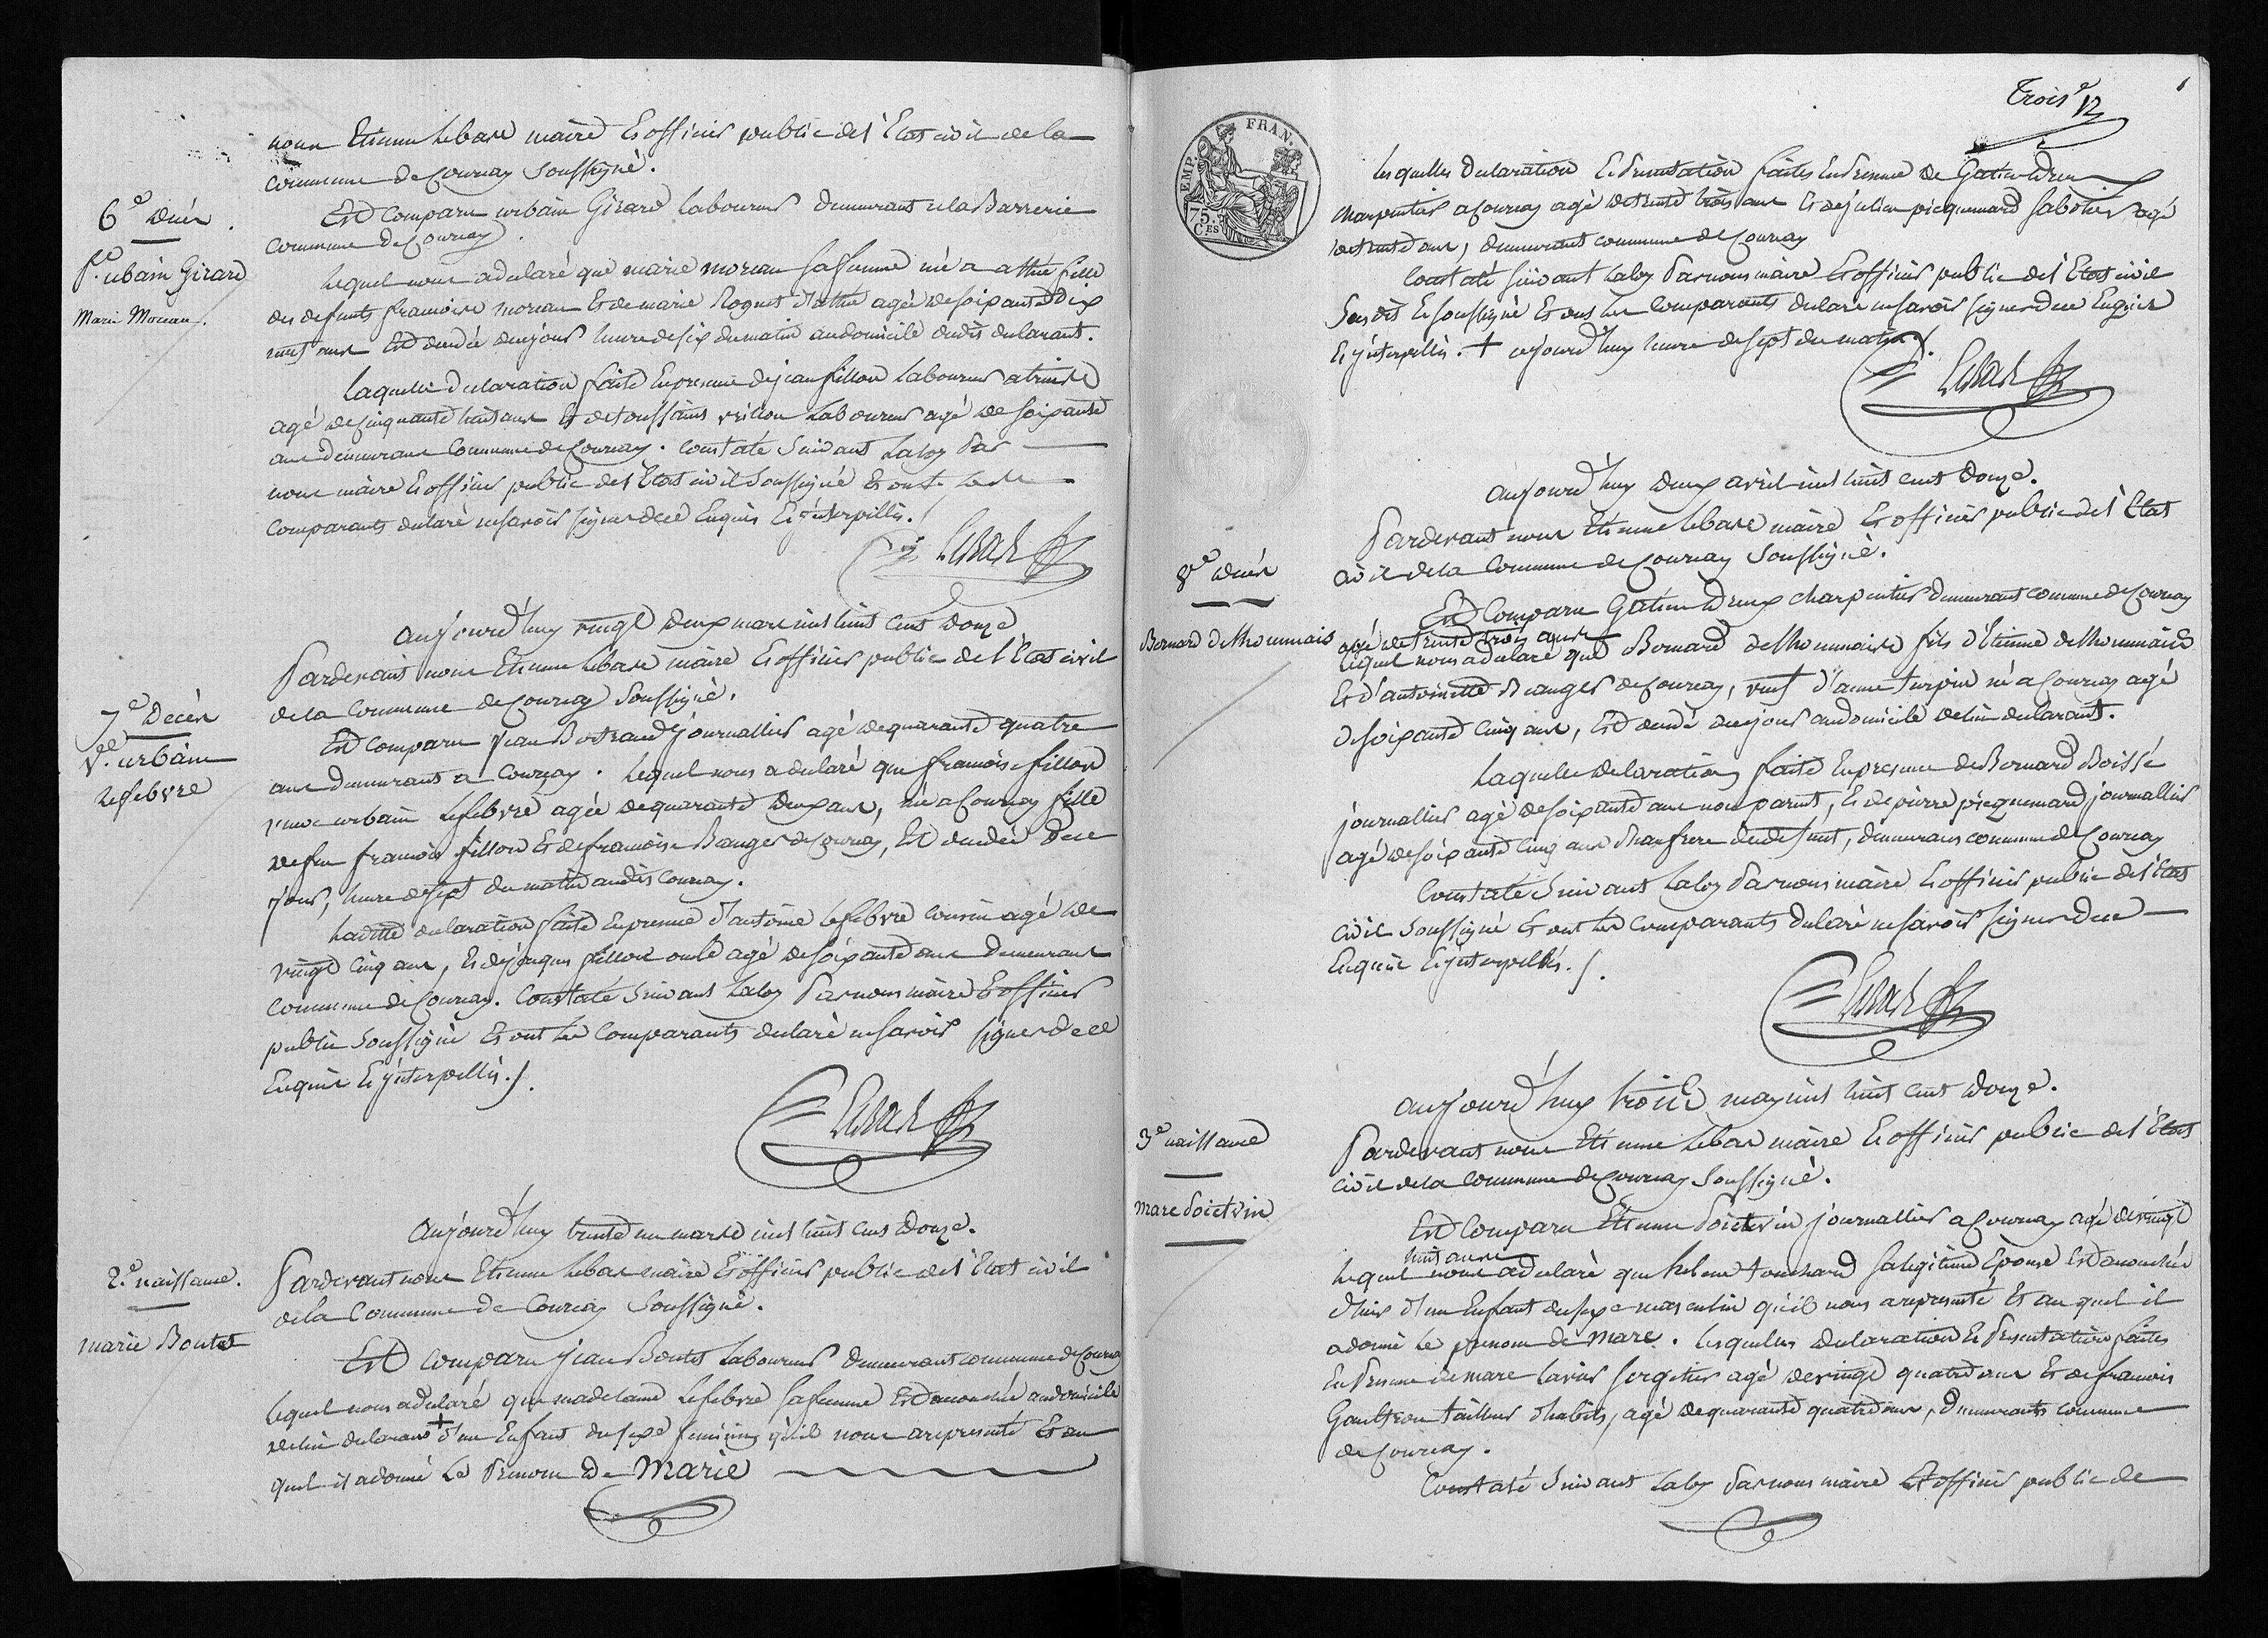 nous Etienne Lebase maire Et officier public de l'Etat civil de la
commune de Courcay soussigné.
6e décés
fe. ubain Girard
Marie Moreau.
Est comparu urbain Girard laboureur demeurant a la Barrerie
commune de Courcay.
lequel nous a déclaré que marie moreau sa femme né a athée fille
des defunts francoise moreau Et de marie Roguet d'athée agée de soixante dix
huit ans Est decedée cejour heure de six du matin au domicile dudit declarant.
Laquelle declaration faite En presence de jean fillon Laboureur a
agé de cinquante huit ans Et de toussaint veillon Laboureur agé de soixante
ans demeurans commune de Courcay. constaté Suivant La loy Par
nous maire Et officier public de l'Etat civil soussigné Et ont les
comparants declaré ne savoir signer de ce Enquis Et interpellés./.
Lebase
aujourd'huy vingt deux mars mil huit cent douze
Pardevant nous Etienne Lebase maire Et officier public de l'Etat civil
de la commune de Courcay Soussigné.
7e Décés
Ve. urbain
Lefebvre
Est comparu jean Bertrand journallier agé de quarante quatre
ans demeurant a Courcay. Lequel nous a declaré que francoise fillon
veuve urbain Lefebvre agée de quarante deux ans, né a Courcay fille
de feu francois fillon Et de francoise Bauger de Courcay, Est decedée de ce
jour, heure de sept du matin audit Courcay.
Ladite declaration faite En presence d'antoine Lefebvre cousin agé de
vingt cinq ans, Et de jacques fillon oncle agé de soixante ans demeurant
commune de Courcay. Constaté Suivant La loy Par nous maire Et officier
public Soussigné Et ont les comparants declaré ne savoir signer de ce
Enquis Et interpellés./.
Lebase
Aujourd'huy trente un mars mil huit cent douze.
2.e naissance.
marie Boutet
Pardevant nous Etienne Lebase maire Et officier public de l'Etat civil
de la Commune de Courcay Soussigné.
Est comparu jean Boutet Laboureur demeurant commune de Courcay
lequel nous a declaré que madelaine Lefebvre sa femme Est accouchée au domicile
de lui declarant + d'un Enfant du sexe feminin qu'il nous a representé Et au
quel il a donné Le Prenom De Marie
Trois.e
EMP. FRAN.
75. C.ES
Lesquelles declaration Et Presentation faites En Presence de Gatien dreux
charpentier a Courcay agé de trente trois ans Et de julien picquemard sabotier agé
de trente ans, demeurant commune de Courcay
Constaté suivant La loy Par nous maire Et officier public de l'Etat civil
Susdit Et soussigné Et ont les comparants declaré ne savoir signer de ce Enquis
Et interpellés. + cejourd'huy heure de sept du matin./.
Lebase
aujourd'huy deux avril mil huit cent douze.
Pardevant nous Etienne Lebase maire Et officier public de l'Etat
civil de la commune de Courcay Soussigné.
8e décés
Bernard delhommais
Est Comparu Gatien Dreux charpentier demeurant commune de Courcay
agé de trente trois ans
lequel nous a declaré que Bernard delhommaise fils d'Etienne delhommaise
Et d'antoinette Bauger de Courcay, veuf d'anne turpin né a Courcay agé
de soixante cinq ans, Est decedé cejour au domicile de lui declarant.
Laquelle declaration faite En presence de Bernard Boissé
journallier agé de soixante ans non parent, Et de pierre picquemard journallier
agé de soixante cinq ans beaufrere du defunt, demeurans commune de Courcay
Constaté Suivant La loy Par nous maire Et officier public de l'Etat
civil soussigné Et ont les comparants declaré ne savoir signer de ce
Enquis Et interpellés./.
Lebase
aujourd'huy trois may mil huit cent douze.
3e naissance
marc Poictvin
Pardevant nous Etienne Lebase maire Et officier public de l'Etat
civil de la commune de Courcay Soussigné.
Est Comparu Etienne Poictvin journallier a Courcay agé de vingt
huit ans
lequel nous a declaré que helene touchard sa legitime Epouse Est accouchée
d'hier d'un Enfant du sexe masculin qu'il nous a representé Et auquel il
a donné Le prenom de Marc. Lesquelles declaration Et Presentation faites
En Presence de marc Lavier sergetier agé de vingt quatre ans Et de francois
Gaultron tailleur d'habits, agé de quarante quatre ans, demeurants commune
de Courcay.
Constaté Suivant La loy Par nous maire Et officier public de